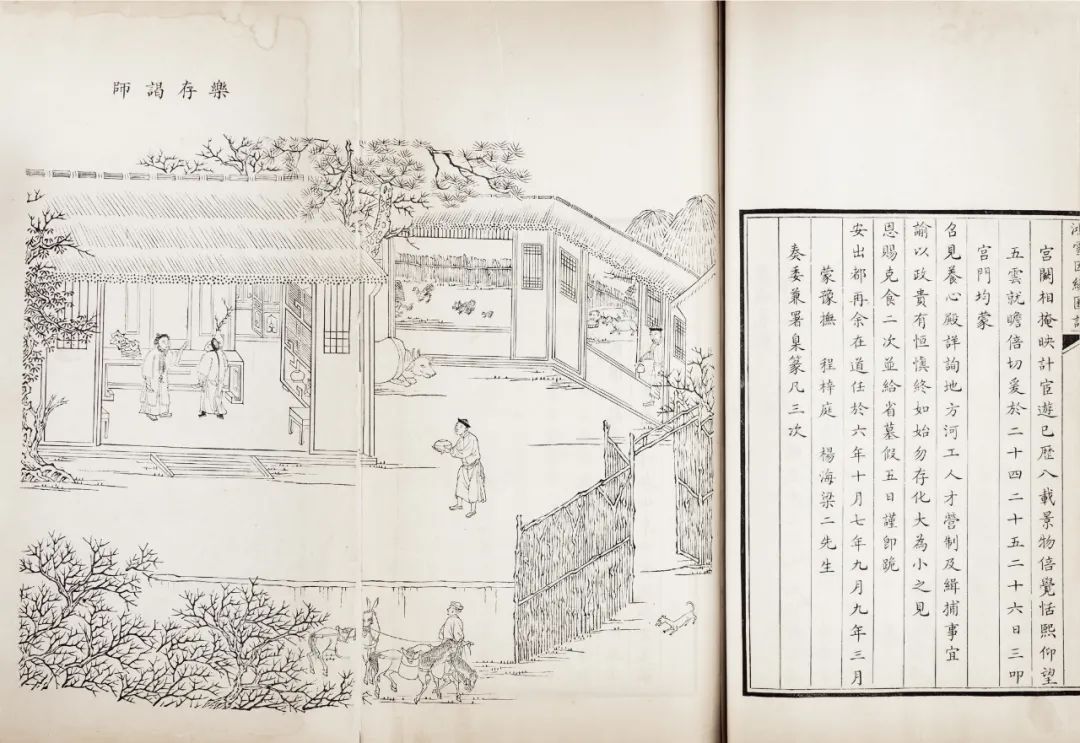 鴻雪因緣圖記
宮闕相掩映計宦遊已歷八載景物倍覺恬熙仰望
五雲就瞻倍切爰於二十四二十五二十六日三叩
宮門均蒙
召見養心殿詳詢地方河工人才營制及緝捕事宜
諭以政貴有恒慎終如始勿存化大為小之見
恩賜克食二次並給省墓假五日謹卽跪
安出都再余在道任於六年十月七年九月九年三月
蒙豫撫 程梓庭 楊海梁二先生
奏委兼署臬篆凡三次
樂存謁師